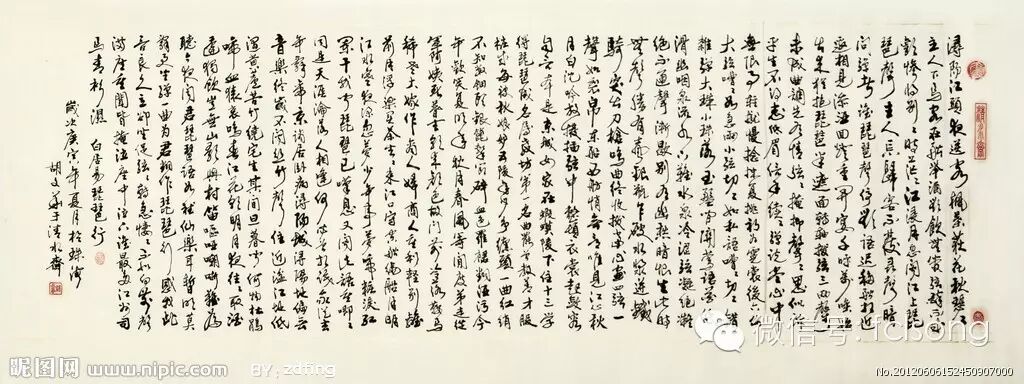 潯陽江頭夜送客楓葉荻花秋瑟瑟
主人下馬客在船舉酒欲飲無管絃醉不成
歡慘將別別時茫茫江浸月忽聞水上琵
琶聲主人忘歸客不發尋聲暗
問彈者誰琵琶聲停欲語遲移船相近
邀相見添酒回燈重開宴千呼萬喚始
出來猶抱琵琶半遮面轉軸撥絃三兩聲
未成曲調先有情絃絃掩抑聲聲思似訴
平生不得志低眉信手續續彈說盡心中
無限事輕攏慢撚抹復挑初為霓裳後六幺
大絃嘈嘈如急雨小絃切切如私語嘈嘈切切錯
雜彈大珠小珠落玉盤間關鶯語花底
滑幽咽泉流水下灘水泉冷澀絃凝絕凝
絕不通聲漸歇別有幽愁暗恨生此時
無聲勝有聲銀瓶乍破水漿迸鐵
騎突出刀槍鳴曲終收撥當心畫四絃一
聲如裂帛東船西舫悄無言唯見江心秋
月白沉吟放撥插絃中整頓衣裳起斂容
自言本是京城女家在蝦蟆陵下住十三學
得琵琶成名屬教坊第一部曲罷曾教善才服
妝成每被秋娘妒五陵年少爭纏頭一曲紅綃
不知數鈿頭銀篦擊節碎血色羅裙翻酒污今
年歡笑復明年秋月春風等閒度弟走從
軍阿姨死暮去朝來顏色故門前冷落鞍馬
稀老大嫁作商人婦商人重利輕別離
前月浮梁買茶去去來江口守空船繞船月明
江水寒夜深忽夢少年事夢啼妝淚紅
闌干我聞琵琶已嘆息又聞此語重唧唧
同是天涯淪落人相逢何必曾相識我從去
年辭帝京謫居臥病潯陽城潯陽地僻無
音樂終歲不聞絲竹聲住近湓江地低
濕黃蘆苦竹繞宅生其間旦暮聞何物杜鵑
啼血猿哀鳴春江花朝秋月夜往往取酒
還獨傾豈無山歌與村笛嘔啞嘲哳難為
聽今夜聞君琵琶語如聽仙樂耳暫明莫
辭更坐彈一曲為君翻作琵琶行感我此
言良久立卻坐促絃絃轉急淒淒不似向前聲
滿座重聞皆掩泣座中泣下誰最多江州司
馬青衫濕 白居易琵琶行
歲次庚寅年夏月於珠海
胡文 於清水齋
微信号: fcbong
昵图网 www.nipic.com BY: zdfing
No.20120606152450907000